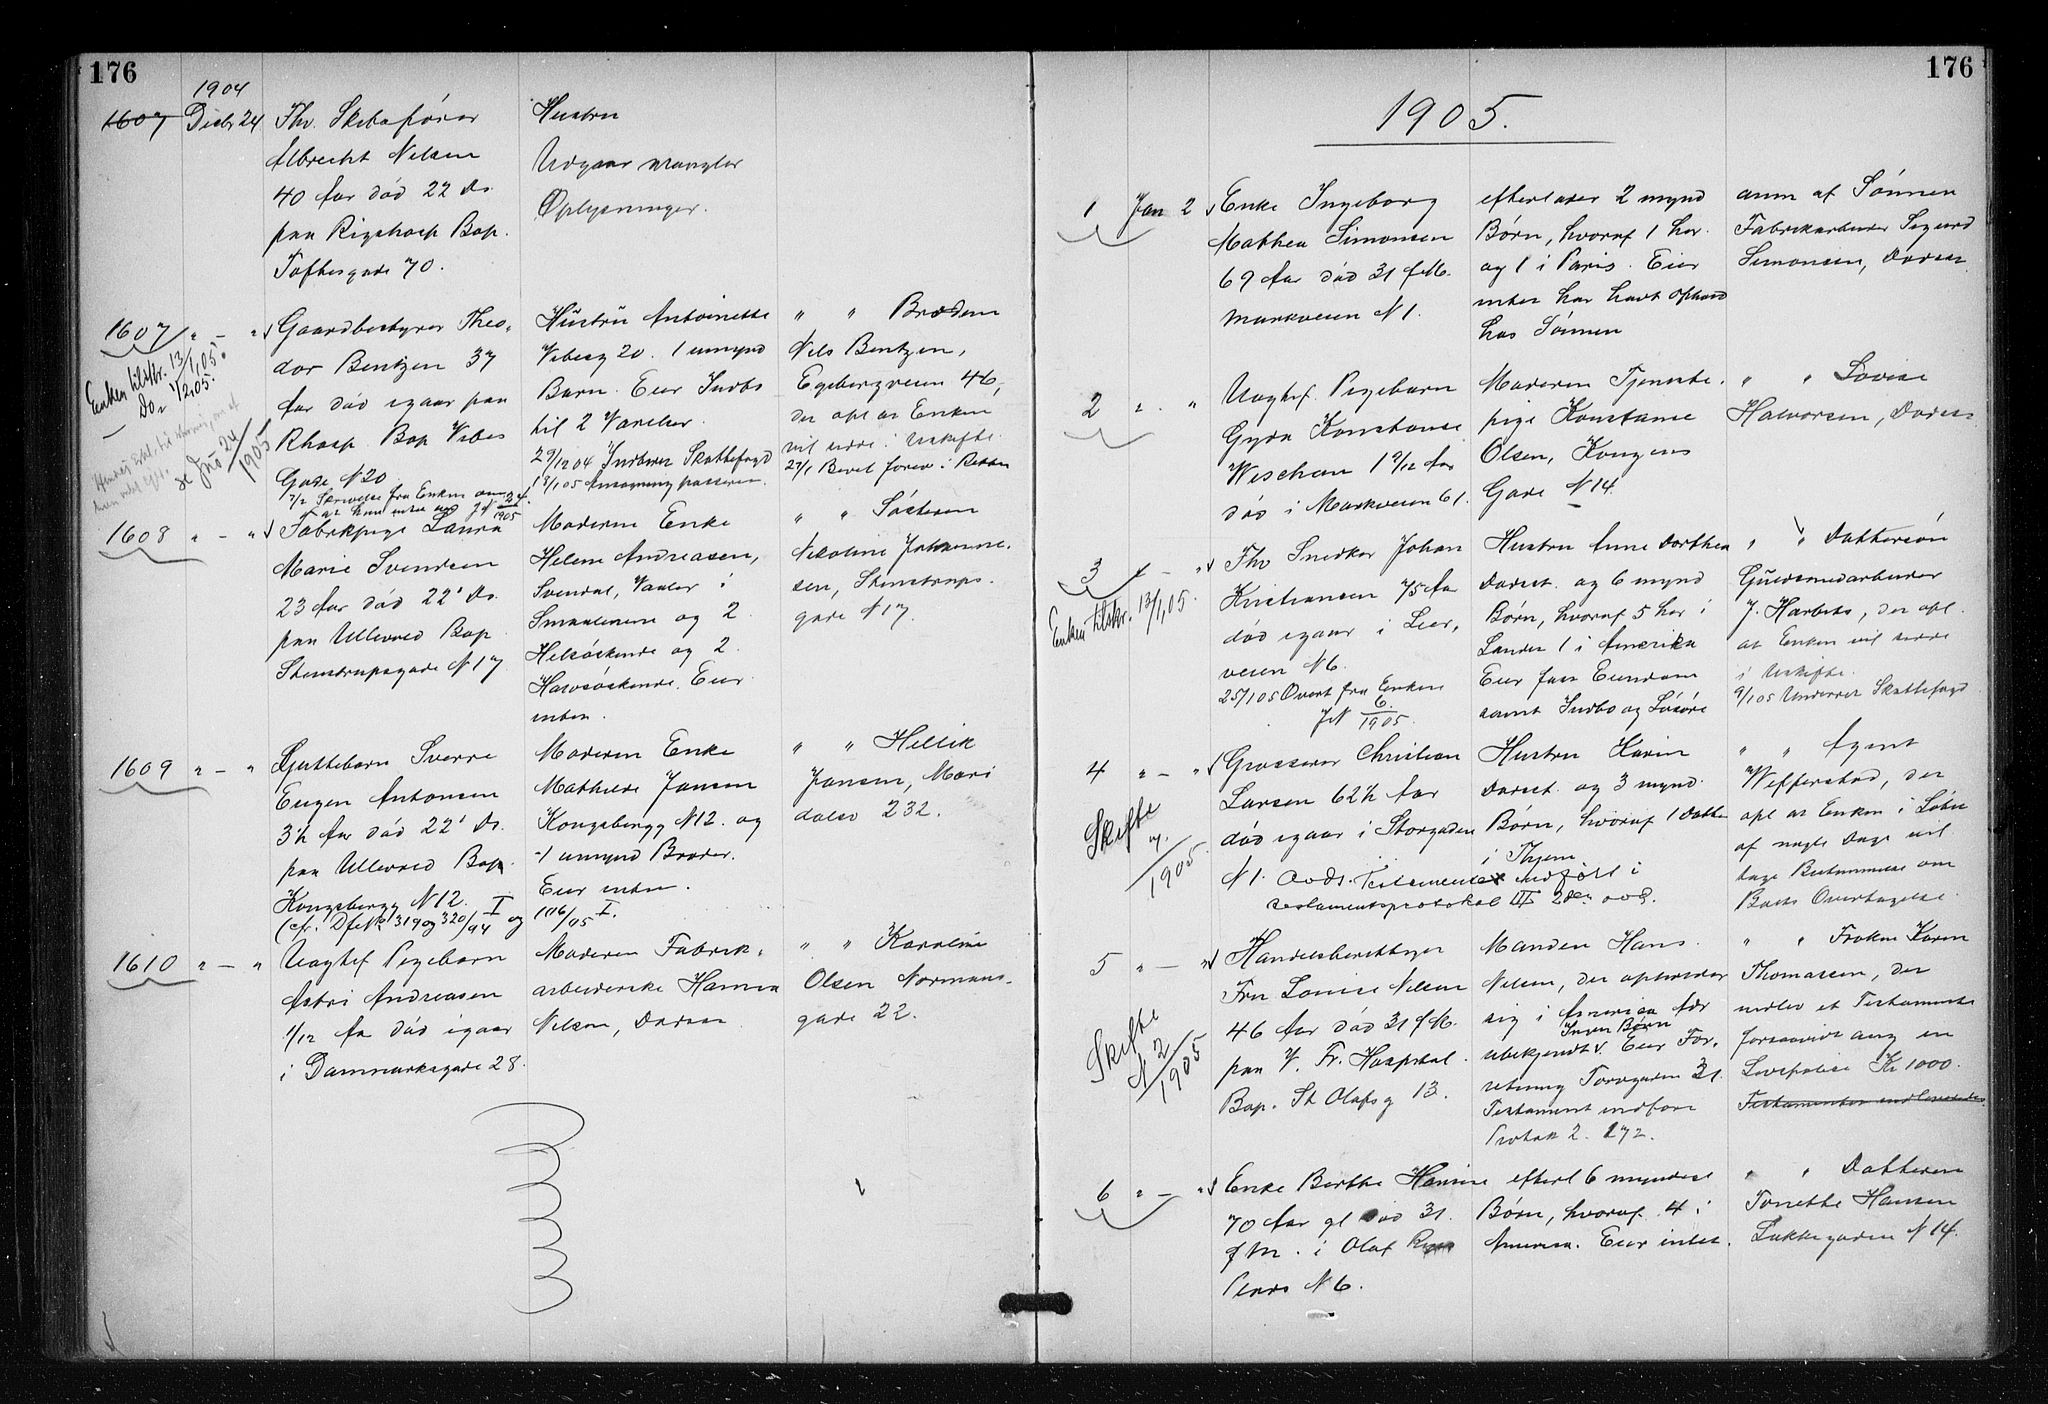 176
1904
1607 Decbr 24
Fhv. Skibsfører
Albrecht Nilsen
40 Aar død 22 ds.
paa Rigshosp Bop.
Toftesgade 70.
Hustru
Udgaar mangler
Oplysninger.
1607 " - "
Enken tilskr. 13/1,05.
Do. 1/2,05.
cfr Jno 24/1905
Gaardbestyrer Theo-
dor Bentzen 37
Aar død igaar paa
Rhosp. Bop Vibes
Gade N 20
7/2 Skrivelse fra Enken
Hustru Antoinette
Vibesg 20. 1 umynd
Barn. Eier Indbo
til 2 Værelser.
29/12 04 Indberer Skattefogd
" " Broderen
Nils Bentzen,
Egebergveien 46,
der opl at Enken
vil sidde i Uskifte.
27/1 Bevil forev. i Retten
1608 " - "
Fabrikpige Laura
Marie Svendsen
23 Aar død 22' Ds.
paa Ullevaal Bop
Stenstrupsgade N 17
Moderen Enke
Helene Andreasen,
Svendal, Vaaler i
Smaalenene og 2
Helsøskende og 2
Halvsøskende. Eier
intet.
" " Søsteren
Nicoline Johanne-
sen, Stenstrups-
gade N 17.
1609 " - "
Guttebarn Sverre
Eugen Antonsen
3½ Aar død 22' Ds.
paa Ullevaal Bop
Kongsbergg N 12.
(cfr. Dfe No 319 og 320/94 I og
Moderen Enke
Mathilde Jansen
Kongsbergg N 12. og
1 umynd Broder.
Eier intet.
106/05 I.
" " Hellik
Jansen, Mari
dalsv 232.
1610 " - "
Uægtef Pigebarn
Astri Andreasen
1/12 Aar død igaar
i Danmarksgade 28.
Moderen Fabrik-
arbeiderske Hanna
Nilsen, Darsst
" " Karoline
Olsen Normans-
gade 22.
176
1905.
1 Jan 2
Enke Ingeborg
Mathea Simonsen
69 Aar død 31 f.M.
Markveien N 1.
efterlader 2 mynd
Børn, hvoraf 1 her
og 1 i Paris. Eier
intet har havt Ophold
hos Sønnen
anm af Sønnen
Fabrikarbeider Sigurd
Simonsen, Darsst
2 " "
Uægtef. Pigebarn
Gyda Konstanse
Wischan 1 9/12 Aar
død i Markveien 61.
Moderen Tjeneste-
pige Konstanse
Olsen, Kongens
Gade N 14.
" " Lovise
Halvorsen, Darsst
3 " - "
Enken tilskr. 13/1,05.
Fhv Snedker Johan
Kristiansen 75 Aar
død igaar i Lier-
veien N 6.
25/1 05 Overt fra Enken
JN 6/1905.
Hustru Anne Dorthea
Darsst. og 6 mynd
Børn, hvoraf 5 her i
Landet 1 i Amerika
Eier fast Eiendom
samt Indbo og Løsøre
" " Dattersøn
Guldsmedarbeider
J. Harbitz, der opl.
at Enken vil sidde
i Uskifte.
9/1 05 Underret Skattefogd
4 " - "
Skifte
1/1905.
Grosserer Christian
Larsen 62½ Aar
død igaar i Storgaden
N 1. Avds. Testamente indført i
testamentsprotokol III 2den avd.
Hustru Karin
Darsst. og 3 mynd
Børn, hvoraf 1 Datter
i Thjem
" " Agent
Wefferstad, der
opl at Enken i Løbet
af nogle Dage vil
tage Bestemmelse om
Boets Overtagelse.
5 " - "
Skifte
N 2/1905
Handelsberettiget
Fru Louise Nilsen
46 Aar død 31 f.M.
paa V. Fr. Hospital.
Bop. St Olafsg 13.
Manden Hans
Nilsen, der opholder
sig i Amerika Adr
Ingen Børn
ubekjendt. Eier For-
retning Torvgaden 31.
Testament indført
Protok 2. 172.
" " Frøken Karen
Thomassen, der
indlev et Testamente
forsaavidt ang en
Livspolise Kr 1000.
Testamentet indleveredes.
6 " - "
Enke Berthe Hansine
70 Aar gl død 31.
f M. i Olaf Ryes
Plads N 6.
efterl 6 myndige
Børn, hvoraf 4 i
Amerika. Eier intet.
" " Datteren
Tonette Hansen
Løkkegaden N 14.